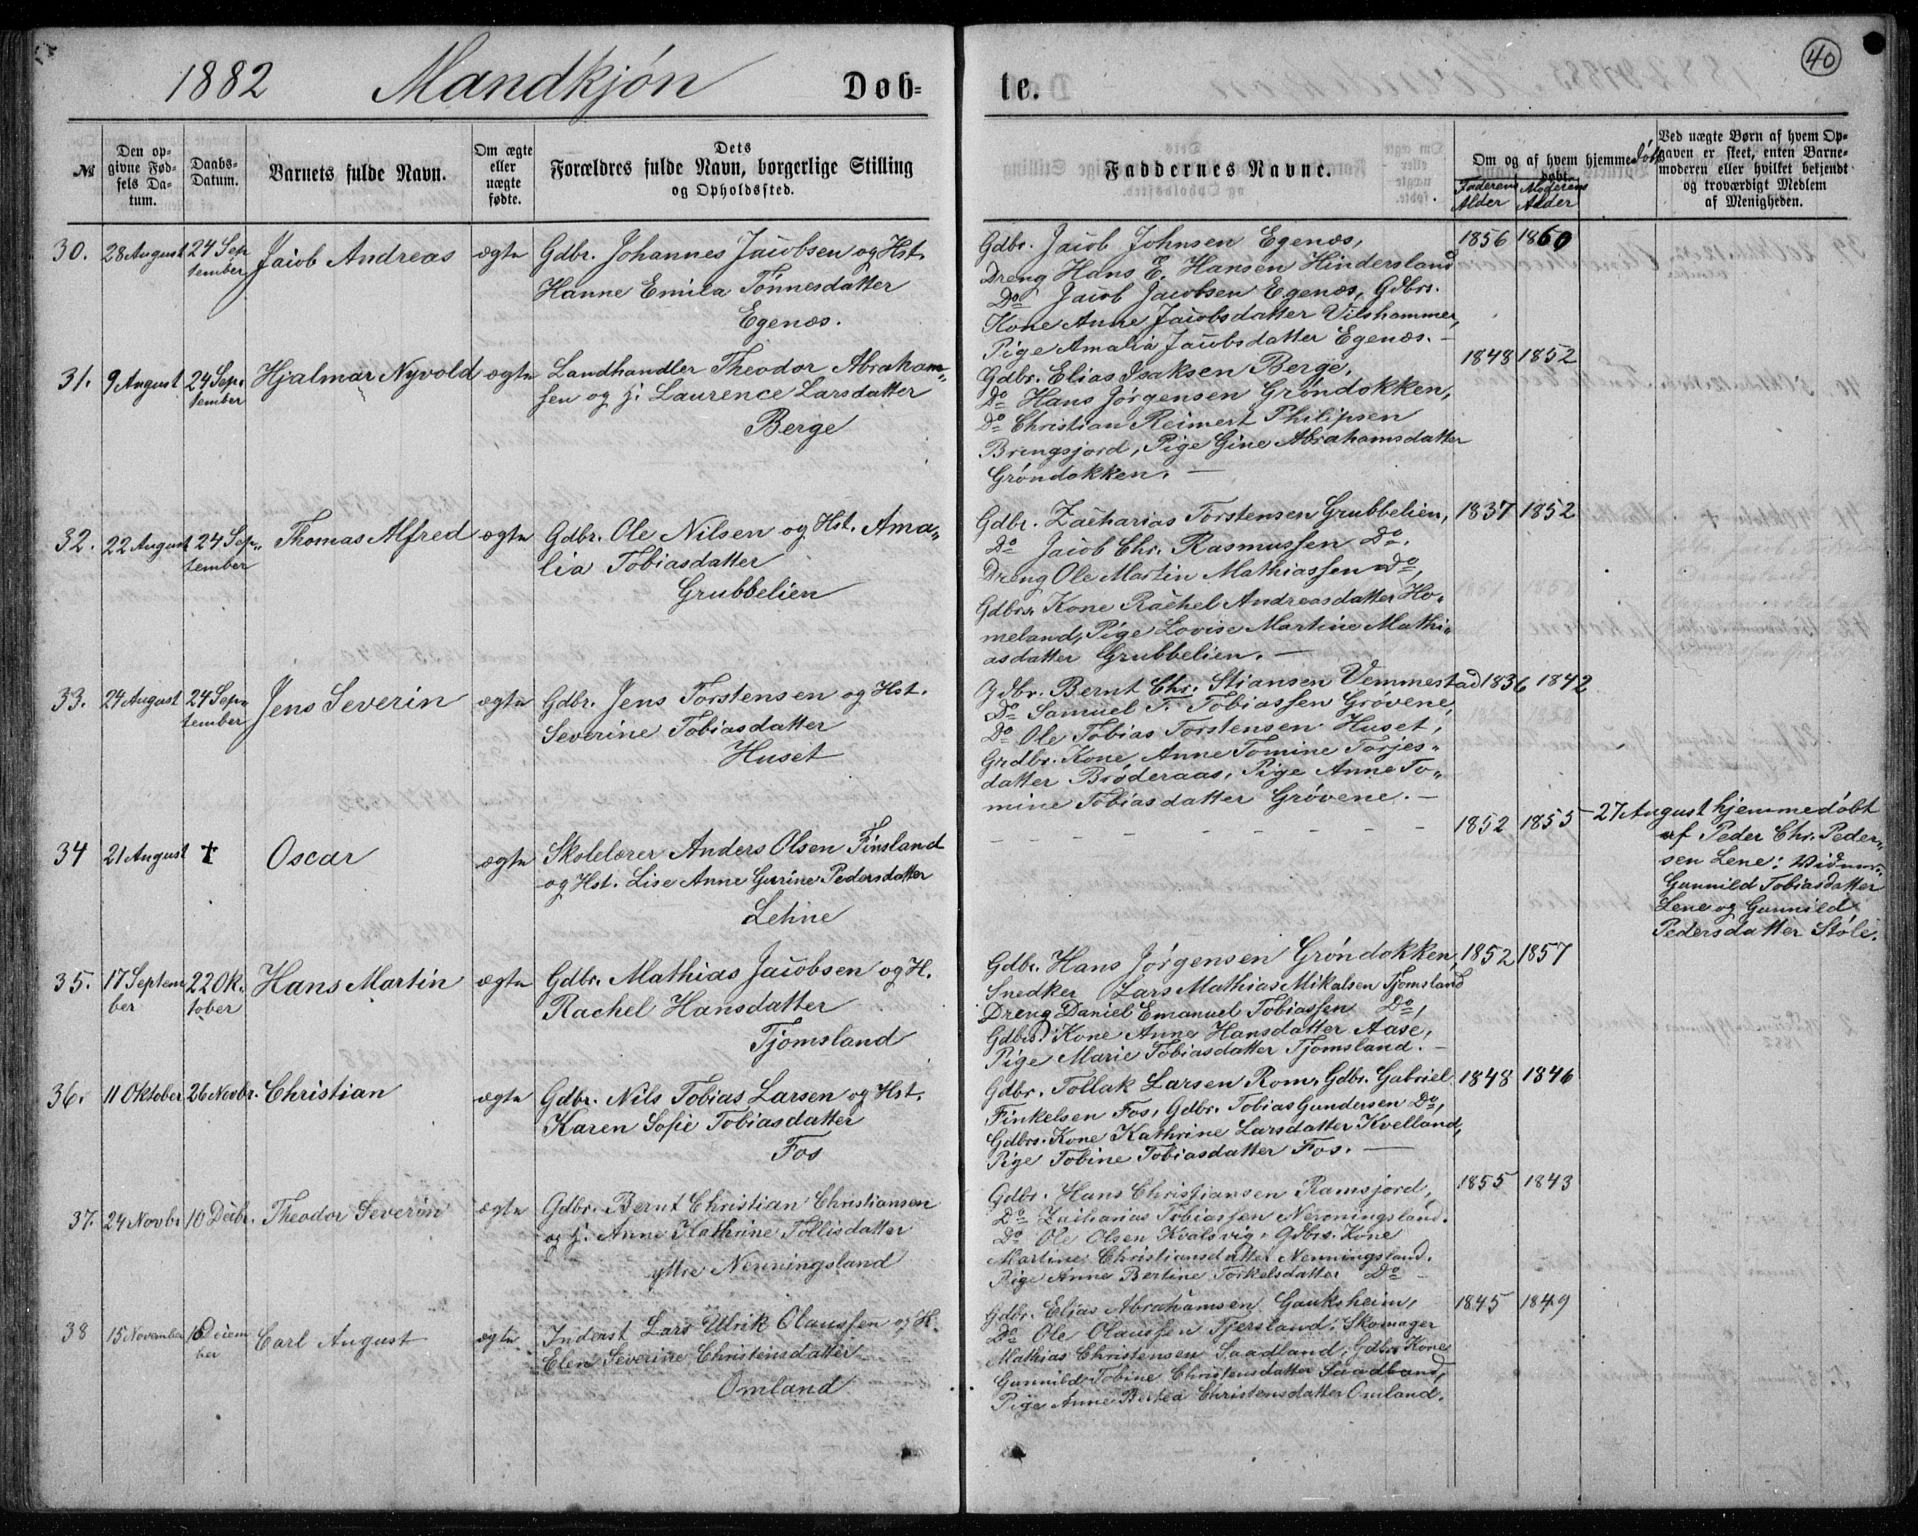 40
1882 Mandkjón Døb= te.
№
Den op-
givne Fød-
sels Da-
tum.
Daabs-
Datum.
Barnets fulde Navn.
Om ægte
eller
uægte
fødte.
Dets
Forældres fulde Navn, borgerlige Stilling
og Opholdssted.
Faddernes Navne.
Om og af hvem hjemme
døbt.
Faderens Moderens
Alder Alder
Ved uægte Børn af hvem Op-
gaven er skeet, enten Barne-
moderen eller hvilket bekjendt
og troværdigt Medlem
af Menigheden.
30. 28 August 24 Sep
tember Jacob Andreas ægte Gdbr. Johannes Jacobsen og Hst.
Hanne Emila Tönnesdatter
Egenæs.
Gdbr. Jacob Johnsen Egenæs, 1856 1860
Dreng Hans E. Hansen Hindersland
Do Jacob Jacobsen Egenæs, Gdbrs.
Kone Anne Jacobsdatter Vilshammer,
Pige Amalia Jacobsdatter Egenæs. —
31. 9 August 24 Sep.
tember Hjalmar Nyvold ægte Landhandler Theodor Abraham-
sen og h: Laurence Larsdatter
Berge
Gdbr. Elias Isaksen Berge, 1848 1852
Do Hans Jørgensen Gróndokken,
Do Christian Reimert Philipsen
Bringsjord, Pige Gine Abrahamsdatter
Gróndokken. —
32. 22 August 24 Sep-
tember Thomas Alfred ægte Gdbr. Ole Nilsen og Hst. Ama-
lia Tobiasdatter
Grubbelien
Gdbr. Zacharias Torstensen Grubbelien, 1837 1852
Do Jacob Chr. Rasmussen Do.
Dreng Ole Martin Mathiassen Do,
Gdbrs. Kone Rachel Andreasdatter Ho-
meland, Pige Lovise Martine Mathi-
asdatter Grubbelien. —
33. 24 August 24 Sep-
tember Jens Severin ægte Gdbr. Jens Torstensen og Hst.
Severine Tobiasdatter
Huset
Gdbr. Bernt Chr. Stiansen Vemmestad 1836 1842
Do Samuel T. Tobiassen Gróvene,
Do Ole Tobias Torstensen Huset,
Grdbr. Kone Anne Tomine Torjes-
datter Bróderaas, Pige Anne To-
mine Tobiasdatter Gróvene. —
34 21 August † Oscar ægte Skolelærer Anders Olsen Finsland
og Hst. Lise Anne Gurine Pedersdatter
Lehne
— — — — — — — — 1852 1855 27 August hjemmedöbt
af Peder Chr. Peder-
sen Lene: Vidner
Gunnild Tobiasdatter
Lene og Gunnild
Pedersdatter Stöle.
35. 17 Septem
ber 22 Ok-
tober Hans Martin ægte Gdbr. Mathias Jacobsen og H.
Rachel Hansdatter
Tjomsland
Gdbr. Hans Jörgensen Gróndokken, 1852 1857
Snedker Lars Mathias Mikalsen Tjomsland
Dreng Daniel Emanuel Tobiassen Do,
Gdbrs. Kone Anne Hansdatter Aase,
Pige Marie Tobiasdatter Tjomsland. —
36. 11 Oktober 26 Novbr. Christian ægte Gdbr. Nils Tobias Larsen og Hst.
Karen Sofie Tobiasdatter
Fos
Gdbr. Tollak Larsen Rom, Gdbr. Gabriel 1848 1846
Finkelsen Fos, Gdbr. Tobias Gundersen Do,
Gdbrs. Kone Kathrine Larsdatter Kvelland,
Pige Tobine Tobiasdatter Fos. —
37. 24 Novbr 10 Decbr. Theodor Severin ægte Gdbr. Bernt Christian Christiansen
og h. Anne Kathrine Tollisdatter
ytre Nenningsland
Gdbr. Hans Christiansen Ramsjord, 1855 1843
Do Zacharias Tobiassen Nenningsland.
Do Ole Olsen Kvalsvig, Gdbrs. Kone
Martine Christiansdatter Nenningsland.
Pige Anne Bertine Torkelsdatter Do —
38 15 November 10 Decem
ber Carl August ægte Inderst Lars Ulrik Olaussen og H.
Elen Severine Christensdatter
Omland
Gdbr. Elias Abrahamsen Gauksheim, 1845 1849
Do Ole Olaussen Tjersland, Skomager
Mathias Christensen Saadland, Gdbrs Kone
Gunnild Tobine Christensdatter Saadland,
Pige Anne Bertea Christensdatter Omland.